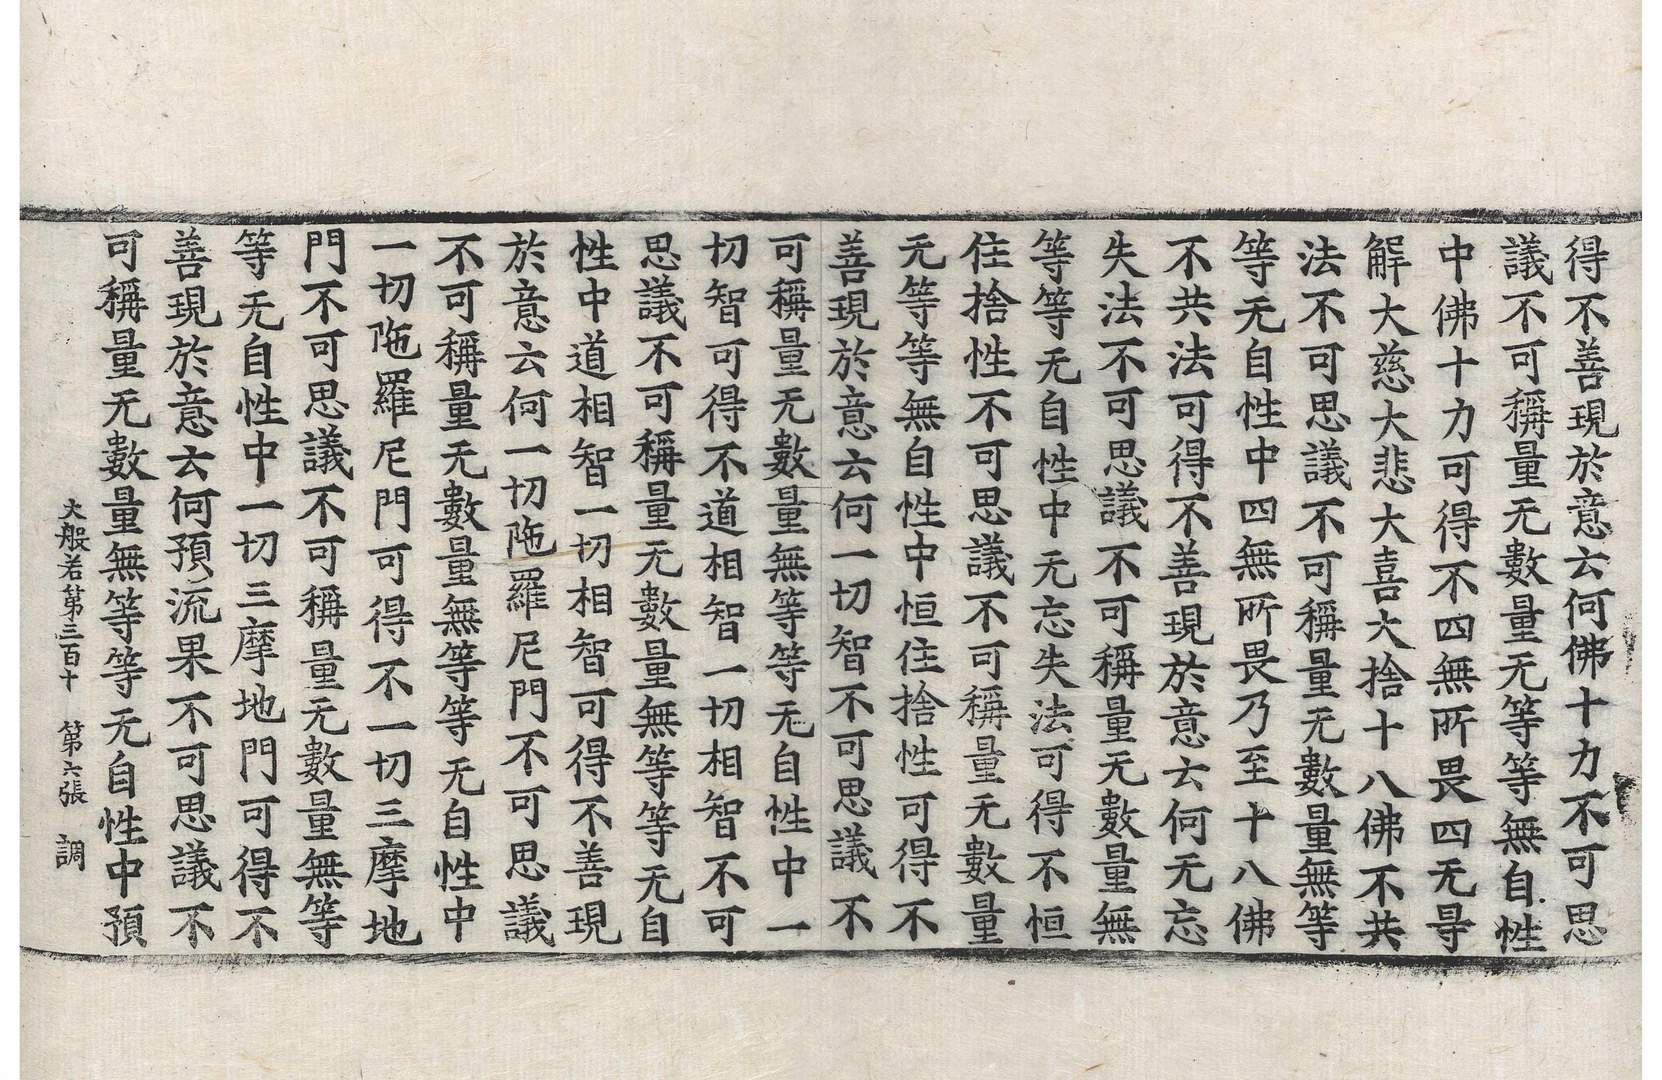 得不善現於意云何佛十力不可思
議不可稱量无數量无等等無自性
中佛十力可得不四無所畏四无㝵
解大慈大悲大喜大捨十八佛不共
法不可思議不可稱量无數量無等
等无自性中四無所畏乃至十八佛
不共法可得不善現於意云何无忘
失法不可思議不可稱量无數量無
等等无自性中无忘失法可得不恒
住捨性不可思議不可稱量无數量
无等等無自性中恒住捨性可得不
善現於意云何一切智不可思議不
可稱量无數量無等等无自性中一
切智可得不道相智一切相智不可
思議不可稱量无數量無等等无自
性中道相智一切相智可得不善現
於意云何一切陁羅尼門不可思議
不可稱量无數量無等等无自性中
一切陁羅尼門可得不一切三摩地
門不可思議不可稱量无數量無等
等无自性中一切三摩地門可得不
善現於意云何預流果不可思議不
可稱量无數量無等等无自性中預
大般若第三百十 第六張 調